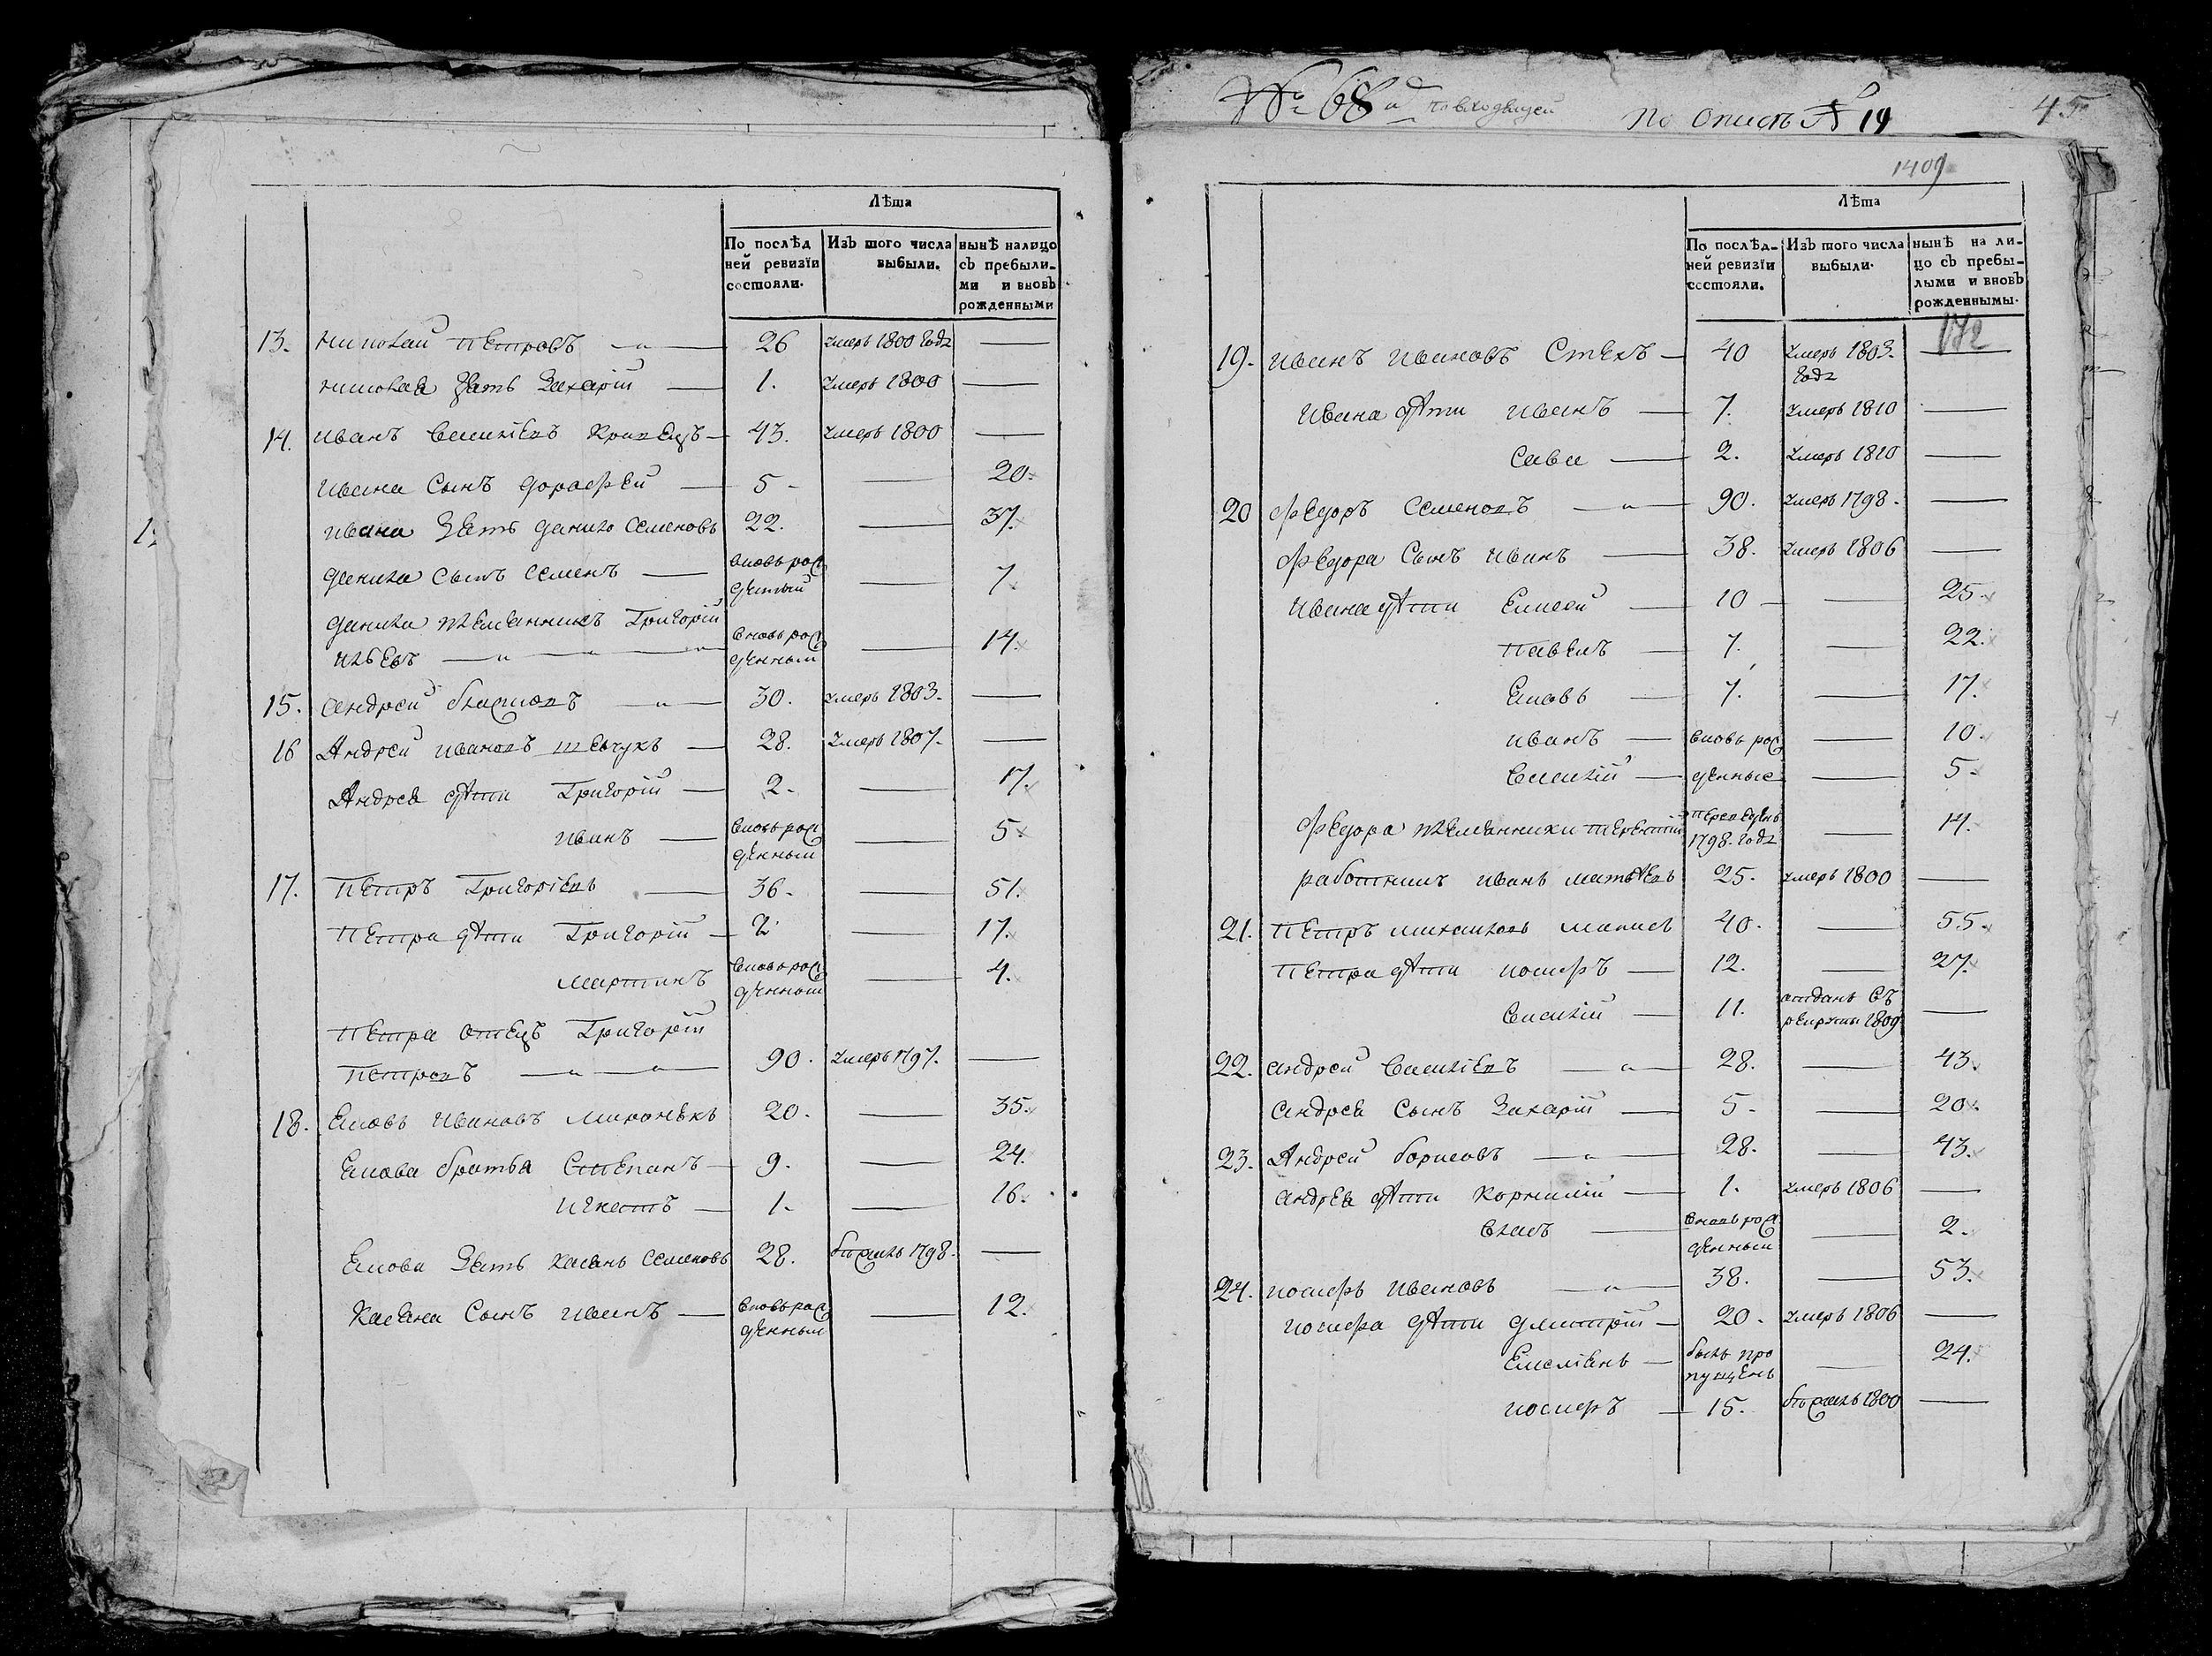 Лѣта
По послѣд
ней ревизїи
состояли.
Изъ того числа
выбыли.
нынѣ налицо
съ прибыли-
ми и вновь
рожденными
13. Николай Петровъ 26 умеръ 1800 года
Николая зять Захарій 1. умеръ 1800
14. Иванъ Василіевъ Кравецъ 43. умеръ 1800
Ивана сынъ Дорофей 5 20.
Ивана зять Данило Семеновъ 22. 37.
Данила сынъ Семенъ вновь рож 7
денный
Данила племянникъ Григорій
Ильевъ вновь рож 14.
денный
15. Андрей Власовъ 30. умеръ 1803.
16 Андрей Ивановъ Шевчукъ 28. умеръ 1807.
Андрея дѣти Григорій 2. 17.
Иванъ вновь рож 5
денный
17. Петръ Григоріевъ 36. 51.
Петра дѣти Григорій 2 17.
Мартинъ вновь рож 4.
денный
Петра отецъ Григорій
Петровъ 90. умеръ 1797.
18. Яковъ Ивановъ 20. 35.
Якова братья Степанъ 9. 24.
Игнатъ 1. 16.
Якова зять Касянъ Семеновъ 28. бѣжалъ 1798.
Касяна сынъ Иванъ вновь рож 12.
денный
№ 68й по входящей
По описѣ № 19
45
1409
Лѣта
По послѣд-
ней ревизїи
состояли.
Изъ того числа
выбыли.
нынѣ на ли-
цо съ прибы-
лыми и вновь
рожденнымы.
172
19. Иванъ Ивановъ 40 умеръ 1803.
года
Ивана дѣти Иванъ 7. умеръ 1810
Сава 2. умеръ 1810
20 Федоръ Семеновъ 90. умеръ 1798.
Федора сынъ Иванъ 38. умеръ 1806
Ивана дѣти Елисей 10 25.
Павелъ 7. 22.
Яковъ 7. 17.
Иванъ вновь рож 10.
Василій денные 5.
Федора племянники Терентій переведенъ 14.
1798. года
работникъ Иванъ Матвѣевъ 25. умеръ 1800
21. Петръ Михаиловъ 40. 55.
Петра дѣти Иосифъ 12. 27.
Василій 11. отданъ въ
рекруты 1809
22. Андрей Василіевъ 28. 43.
Андрея сынъ Захарій 5. 20.
23. Андрей Борисовъ 28. 43.
Андрея дѣти Корнилій 1. умеръ 1806
Власъ вновь рож 2.
денный
24. Иосифъ Ивановъ 38. 53.
Иосифа дѣти Дмитрій 20. умеръ 1806
Емеліянъ былъ про 24.
пущенъ
Иосифъ 15. бѣжалъ 1800